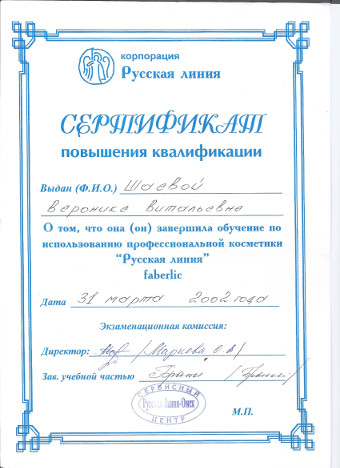 корпорация
Русская линия
СЕРТИФИКАТ
повышения квалификации
Выдан (Ф.И.О.) Шаевой
Веронике Витальевне
О том, что она (он) завершила обучение по
использованию профессиональной косметики
“Русская линия”
faberlic
Дата 31 марта 2002 года
Экзаменационная комиссия:
Директор:
Зав. учебной частью
СЕРВИСНЫЙ
Русская Линия-Омск
ЦЕНТР
М.П.